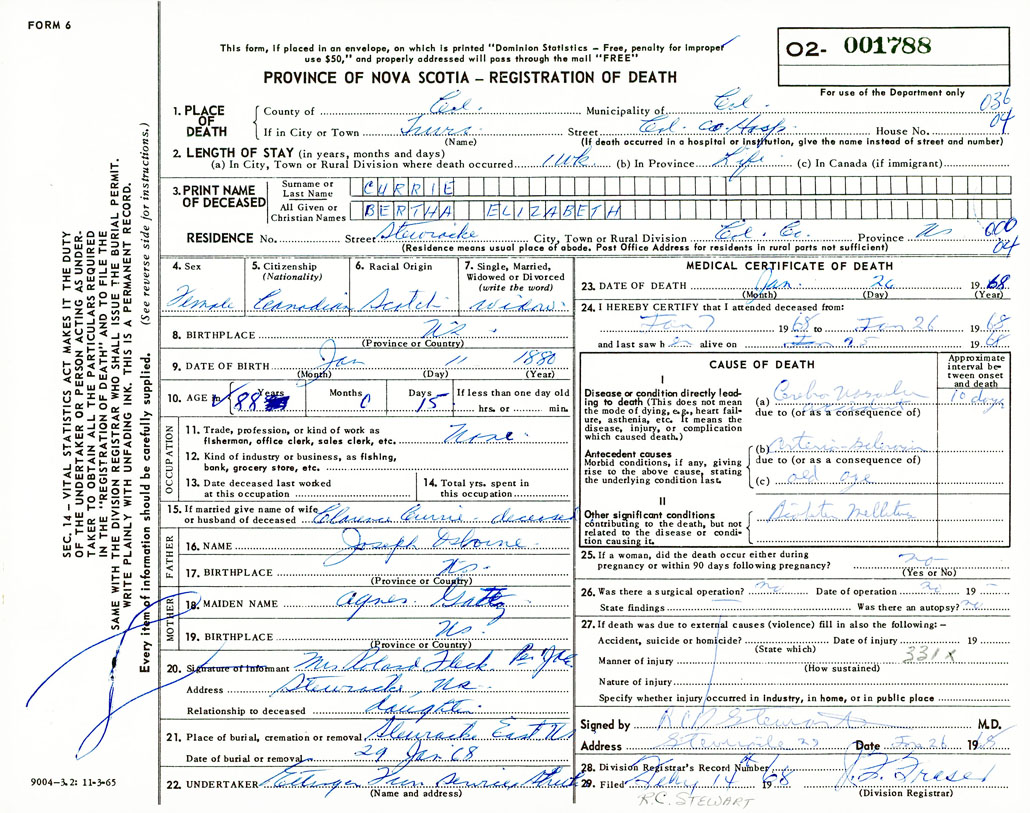 FORM 6
This form, if placed in an envelope, on which is printed "Dominion Statistics – Free, penalty for improper
use $50," and properly addressed will pass through the mail "FREE"
PROVINCE OF NOVA SCOTIA – REGISTRATION OF DEATH
O2- 001788
For use of the Department only
036
04
1. PLACE OF DEATH
County of Col. Municipality of Col.
If in City or Town Truro Street Col. Co. Hosp. House No.
(Name) (If death occurred in a hospital or institution, give the name instead of street and number)
2. LENGTH OF STAY (in years, months and days)
(a) In City, Town or Rural Division where death occurred 1 wk (b) In Province Life (c) In Canada (if immigrant)
3. PRINT NAME OF DECEASED
Surname or Last Name CURRIE
All Given or Christian Names BERTHA ELIZABETH
RESIDENCE No. Street Stewiacke City, Town or Rural Division Col. Co. Province NS 000
04
(Residence means usual place of abode. Post Office Address for residents in rural parts not sufficient)
4. Sex Female
5. Citizenship (Nationality) Canadian
6. Racial Origin Scotch
7. Single, Married, Widowed or Divorced (write the word) Widow
8. BIRTHPLACE NS.
(Province or Country)
9. DATE OF BIRTH Jan 11 1880
(Month) (Day) (Year)
10. AGE in Years 88 Months 0 Days 15 If less than one day old
hrs. or min.
OCCUPATION
11. Trade, profession, or kind of work as
fisherman, office clerk, sales clerk, etc. None.
12. Kind of industry or business, as fishing,
bank, grocery store, etc.
13. Date deceased last worked
at this occupation
14. Total yrs. spent in
this occupation
15. If married give name of wife
or husband of deceased Clarence Currie - deceased
FATHER
16. NAME Joseph Osborne
17. BIRTHPLACE NS.
(Province or Country)
MOTHER
18. MAIDEN NAME Agnes
19. BIRTHPLACE NS.
(Province or Country)
20. Signature of Informant Mrs Roland Per
Address Stewiacke, NS.
Relationship to deceased daughter
21. Place of burial, cremation or removal Stewiacke East NS
Date of burial or removal 29 Jan 68
22. UNDERTAKER Ettinger Fun. Service
(Name and address)
MEDICAL CERTIFICATE OF DEATH
23. DATE OF DEATH Jan. 26 1968
(Month) (Day) (Year)
24. I HEREBY CERTIFY that I attended deceased from:
Jan 7 1968 to Jan 26 1968
and last saw h alive on Jan 25 1968
CAUSE OF DEATH
Approximate interval between onset and death
I
Disease or condition directly leading to death (This does not mean
the mode of dying, e.g., heart failure, asthenia, etc. It means the
disease, injury, or complication
which caused death.)
(a) 10 days
due to (or as a consequence of)
Antecedent causes
Morbid conditions, if any, giving
rise to the above cause, stating
the underlying condition last.
(b)
due to (or as a consequence of)
(c) old age
II
Other significant conditions
contributing to the death, but not
related to the disease or condition causing it.
Mellitus
25. If a woman, did the death occur either during
pregnancy or within 90 days following pregnancy? no
(Yes or No)
26. Was there a surgical operation? no Date of operation no 19 –
State findings – Was there an autopsy? no
27. If death was due to external causes (violence) fill in also the following: –
Accident, suicide or homicide? Date of injury 19
(State which)
331x
Manner of injury
(How sustained)
Nature of injury
Specify whether injury occurred in industry, in home, or in public place
Signed by R C Stewart M.D.
Address Date Jan 26 1968
28. Division Registrar's Record Number
29. Filed Feby 14th 1968 Fraser
R.C. STEWART (Division Registrar)
SEC. 14 – VITAL STATISTICS ACT MAKES IT THE DUTY
OF THE UNDERTAKER OR PERSON ACTING AS UNDER-
TAKER TO OBTAIN ALL THE PARTICULARS REQUIRED
IN THE "REGISTRATION OF DEATH" AND TO FILE THE
SAME WITH THE DIVISION REGISTRAR WHO SHALL ISSUE THE BURIAL PERMIT.
WRITE PLAINLY WITH UNFADING INK. THIS IS A PERMANENT RECORD.
Every item of information should be carefully supplied. (See reverse side for instructions.)
9004–3.2: 11-3-65